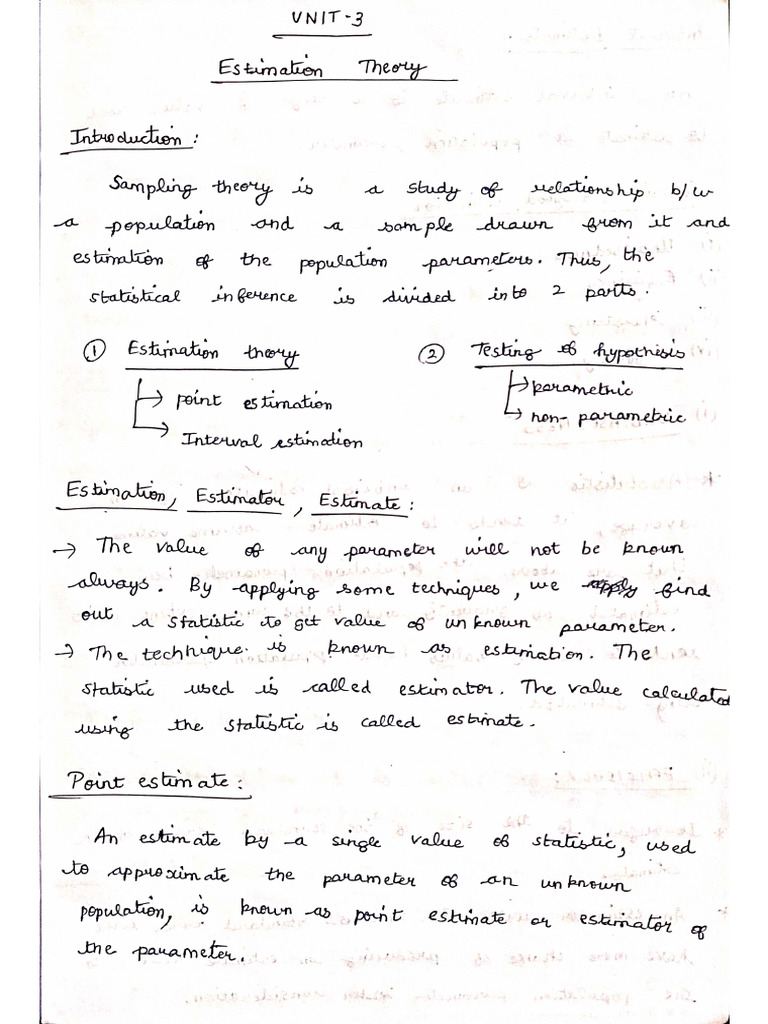 UNIT-3
Estimation Theory
Introduction:
Sampling theory is a study of relationship b/w
a population and a sample drawn from it and
estimation of the population parameters. Thus, the
statistical inference is divided into 2 parts.
① Estimation theory ② Testing of hypothesis
→ point estimation → parametric
→ Interval estimation → non-parametric
Estimation, Estimator, Estimate:
→ The value of any parameter will not be known
always. By applying some techniques, we apply find
out a statistic to get value of unknown parameter.
→ The technique is known as estimation. The
statistic used is called estimator. The value calculated
using the statistic is called estimate.
Point estimate:
An estimate by a single value of statistic, used
to approximate the parameter of an unknown
population, is known as point estimate or estimator of
the parameter.